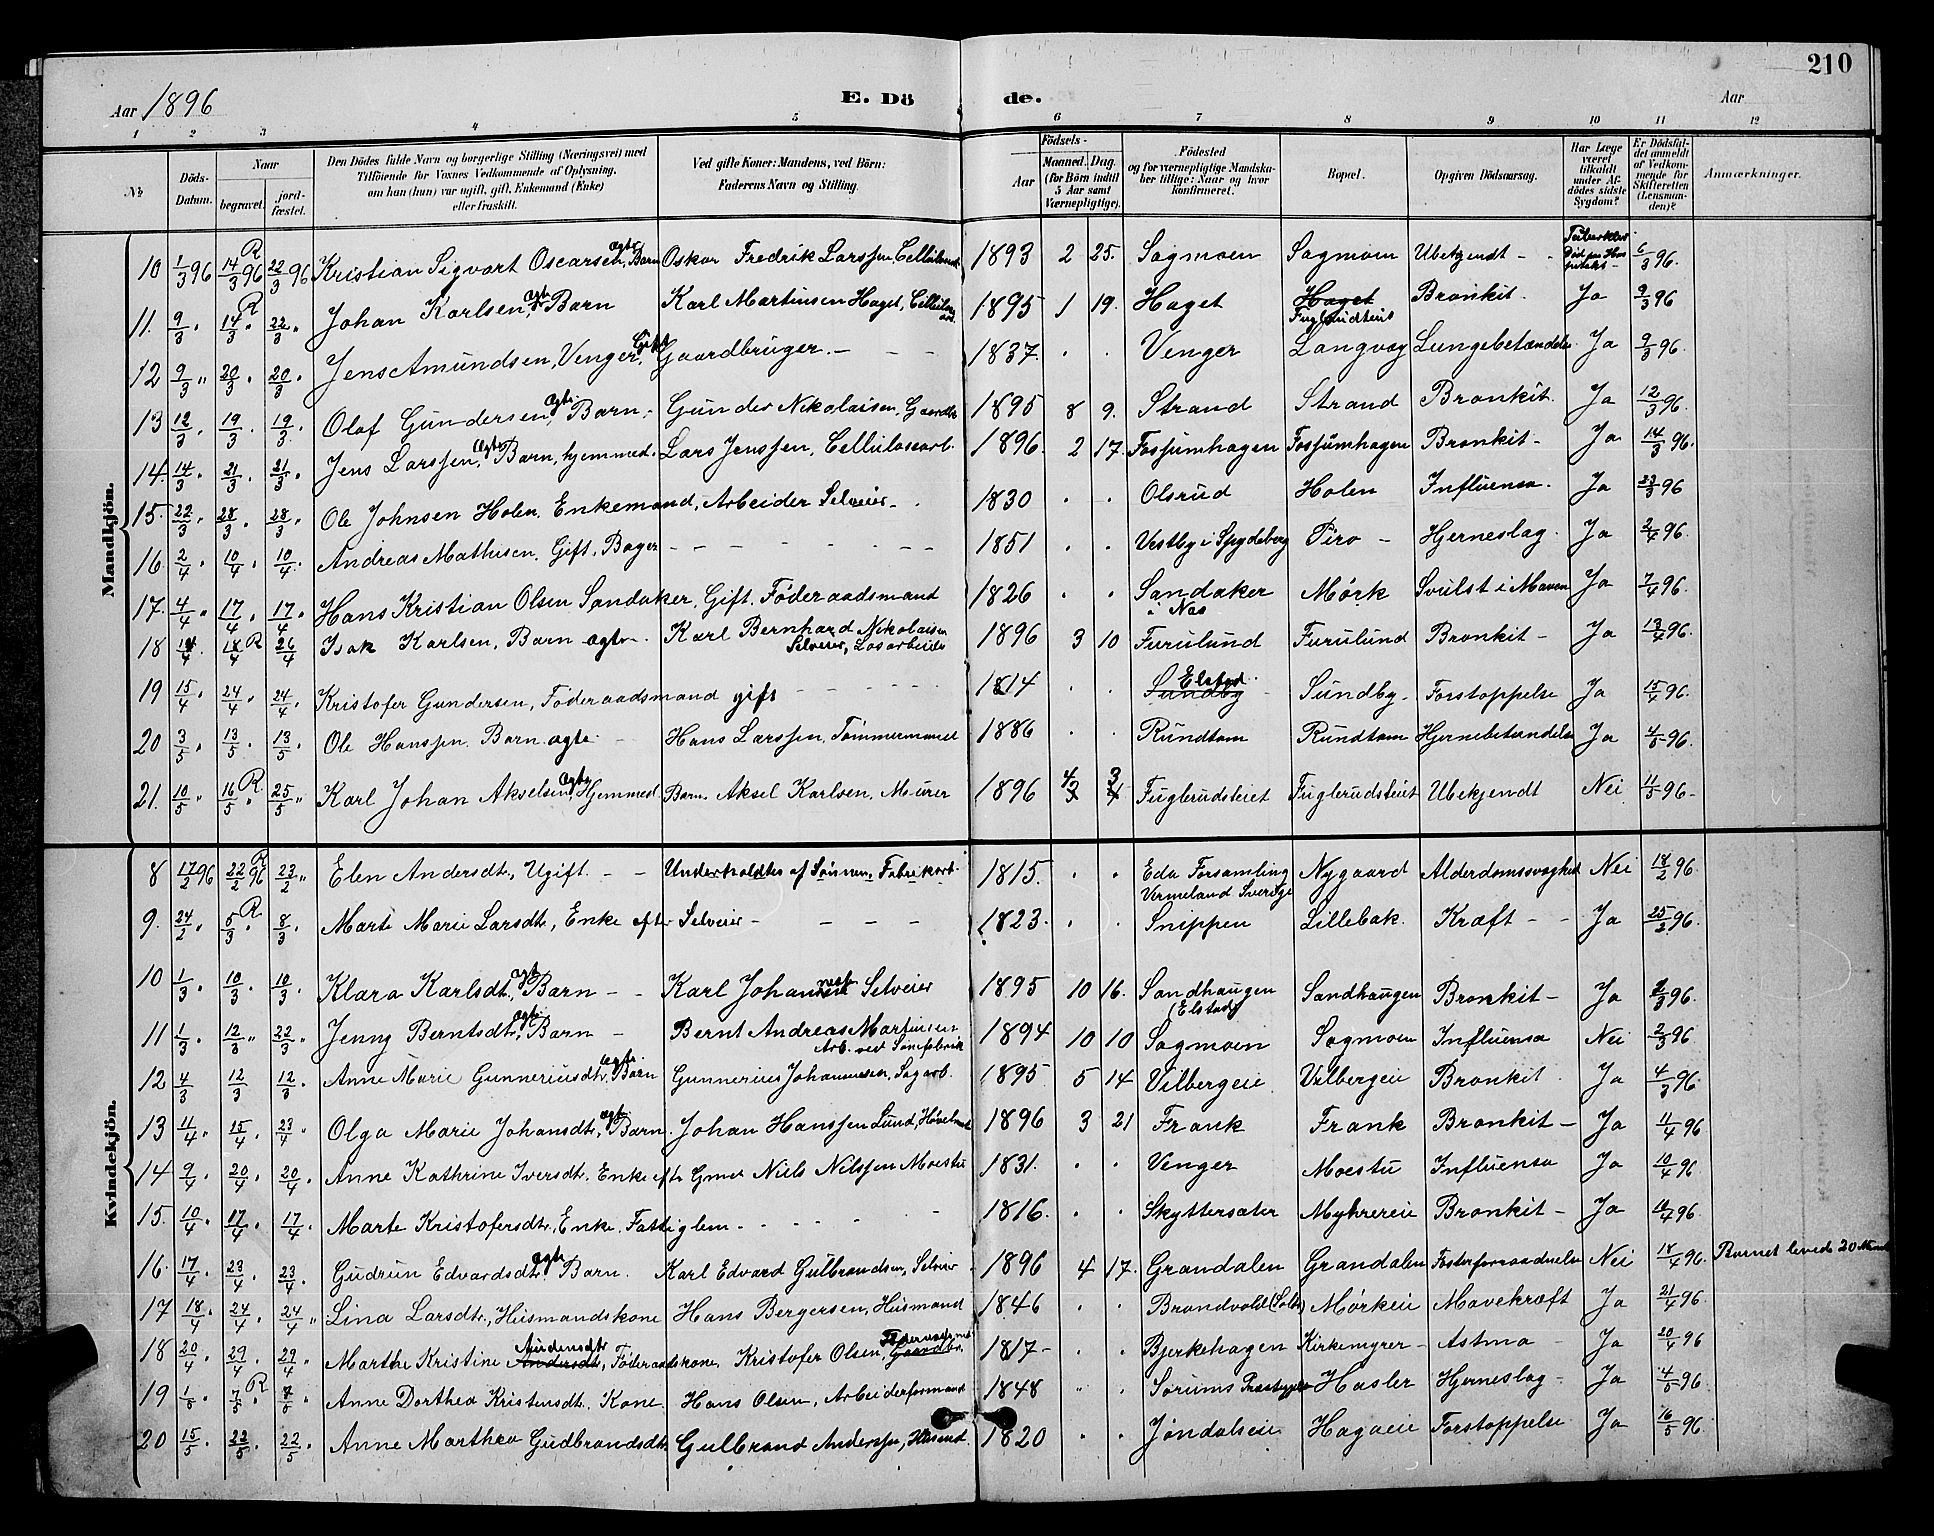 210
Aar 1896 E. Dö de. Aar
1 2 3 4 5 6 7 8 9 10 11 12
№ Döds-Datum. Naar begravet. jordfæstet. Den Dödes fulde Navn og borgerlige Stilling (Næringsvei) med Tilföiende for Voxnes Vedkommende af Oplysning, om han (hun) var ugift, gift, Enkemand (Enke) eller fraskilt. Ved gifte Koner: Mandens, ved Börn: Faderens Navn og Stilling. Födsels- Aar Maaned. Dag. (for Börn indtil 5 Aar samt Værnepligtige). Födested og for værnepligtige Mandskaber tillige: Naar og hvor konfirmeret. Bopæl. Opgiven Dödsaarsag. Har Læge været tilkaldt under Afdödes sidste Sygdom? Er Dödsfaldet anmeldt af Vedkommende for Skifteretten (Lensmanden)? Anmærkninger.
Mandkjön.
10 1/3 96 14/3 96 R 22/3 96 Kristian Sigvart Oscarsen, ægte Barn Oskar Fredrik Larssen, 1893 2 25. Sagmoen Sagmoen Ubekjendt - 6/3 96.
11. 9/3 " 14/3 R 22/3 " Johan Karlsen, ægte Barn Karl Martinsen Haget, 1895 1 19. Haget Haget Fuglerudteiet Bronkit. Ja 9/3 96
12 9/3 " 20/3 " 20/3 " Jens Amundsen, Venger, Gift Gaardbruger. - - - 1837. " " Venger Langvæg Lungebetændelse Ja 9/3 96.
13 12/3 " 19/3 " 19/3 " Olaf Gundersen, ægte Barn. - Gunder Nikolaisen, Gaardbr 1895 8 9. Strand Strand Bronkit. Ja 12/3 96.
14. 14/3 " 21/3 " 21/3 " Jens Larssen, ægte Barn, hjemmed. Lars Jenssen, Cellulosearb. 1896. 2 17. Fossumhagen Fossumhagen Bronkit - Ja 14/3 96.
15. 22/3 " 28/3 " 28/3 " Ole Johnsen Holen. Enkemand, Arbeider Selveier - 1830 " " Olsrud Holen Influensa. Ja 23/3 96
16 2/4 " 10/4 " 10/4 " Andreas Mathisen. Gift. Bager - - - - 1851 " " Vestby i Spydeberg Piro - Hjerneslag. Ja 2/4 96.
17. 4/4 " 17/4 " 17/4 " Hans Kristian Olsen Sandaker, Gift. Føderaadsmand 1826 " " Sandaker i Næs Mørk Svulst i Maven Ja 7/4 96.
18 14/4. 18/4 R 26/4 Isak Karlsen, Barn ægte. Karl Bernhard Nikolaisen Selveier, Løsarbeider 1896 3 10 Furulund Furulund Bronkit - Ja 13/4 96.
19 15/4 " 24/4 " 24/4 " Kristofer Gundersen, Føderaadsmand gift - - - - 1814 " " Sundby Elstad. Sundby - Forstoppelse Ja 15/4 96.
20 3/5 " 13/5 " 13/5 " Ole Hanssen. Barn ægte. - Hans Larssen, Tømmermand 1886 " " Rundtom Rundtom Hjernebetændelse Ja 4/5 96.
21. 10/5 " 16/5 R 25/5 " Karl Johan Akselsen, ægte Hjemmed Barn. Aksel Karlsen, Murer 1896 4/3 3/4 Fuglerudsteiet Fuglerudsteiet Ubekjendt Nei 11/5 96 -
Kvindekjön.
8 17/2 96 22/2 96 R 23/2 " Elen Andersdtr, Ugift. - - Underholdtes af Sønnen, Fabrikarb. 1815. " " Eda Forsamling Vermeland Sverige Nygaard Alderdomssvaghed Nei 18/2 96.
9. 24/2 " 5/3 R 8/3 " Marte Marie Larsdtr, Enke efter Selveier - - - - 1823. " " Snippen Lillebæk. Kræft - - Ja 25/2 96.
10 1/3 " 10/3 " 10/3 " Klara Karlsdtr, ægte Barn - - Karl Johan Selveier 1895 10 16. Sandhaugen (Elstad) Sandhaugen Bronkit - Ja 2/3 96.
11 1/3 " 12/3 " 22/3 " Jenny Berntsdtr, ægte Barn - Bernt Andreas Martinsen Arb. ved 1894 10 10 Sagmoen Sagmoen Influensa Nei 2/3 96.
12 4/3 12/3 12/3 " Anne Marie Gunneriusdtr, ægte Barn Gunnerius Johannessen, Sagarb. 1895 5 14 Vilbergeie Vilbergeie Bronkit. Ja 4/3 96.
13 11/4 " 15/4 " 23/4 " Olga Marie Johansdtr, ægte Barn. Johan Hanssen Lund, 1896 3 21 Frank Frank Bronkit - Ja 11/4 96
14 9/4 " 20/4 " 20/4 " Anne Kathrine Iversdtr. Enke efter Gmd Niels Nilssen Moestu 1831. " " Venger Moestu Influensa Ja 10/4 96
15. 10/4 " 17/4 " 17/4 " Marte Kristofersdtr, Enke, Fattiglem. - - - - 1816. " " Skyttersæter Myhrereie Bronkit - Ja 10/4 96.
16. 17/4 " 23/4 " 23/4 " Gudrun Edvardsdtr, ægte Barn. Karl Edvard Gulbrandsen, Selveier 1896 4 17. Grandalen Grandalen Nei 18/4 96. Barnet levede 20
17 18/4 " 24/4 " 24/4 " Lina Larsdtr, Husmandskone Hans Bergersen, Husmand 1846 " " Brandvold (Solør) Mørkeie Mavekræft Ja 21/4 96.
18 20/4 " 29/4 " 29/4 " Marthe Kristine Andersdtr, Audensdtr Føderaadskone Kristofer Olsen, Gaardbr. Føderaadsmd 1817 - " " Bjerkehagen Kirkemyrer - Astma - Ja 20/4 96
19 1/5 " 7/5 R 7/5 " Anne Dorthea Kristensdtr. Kone. Hans Olsen, Arbeiderformand 1848 " " Sørums Præstegjeld Hasler Hjerneslag - Ja 4/5 96.
20 15/5 " 22/5 " 22/5 " Anne Marthea Gudbrandsdtr. Gulbrand Anderssen, Husmd. 1820 " " Jøndalseie Hagaeie Forstoppelse Ja 16/5 96.